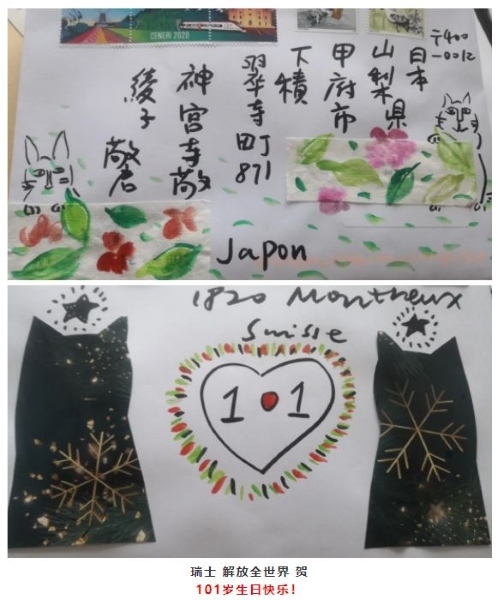 CENERI 2020
〒400
-0012
日本
山梨県
甲府市
下積
翠寺町871
神宮寺敬
綾子
Japon
1820 Montreux
Suisse
1•1
瑞士 解放全世界 贺
101岁生日快乐！